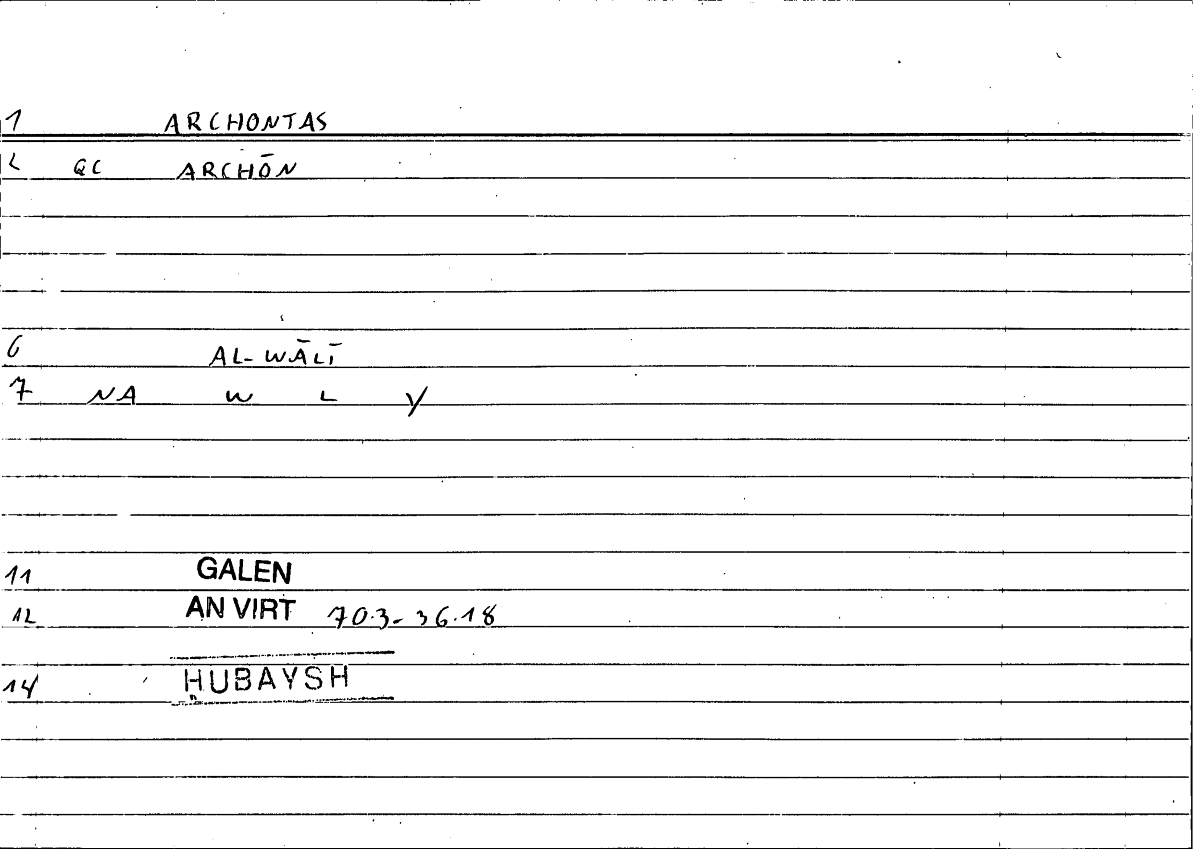 1 ARCHONTAS
2 QC ARCHŌN
6 AL-WĀLĪ
7 NA W L Y
11 GALEN
12 AN VIRT 703-36.18
14 HUBAYSH